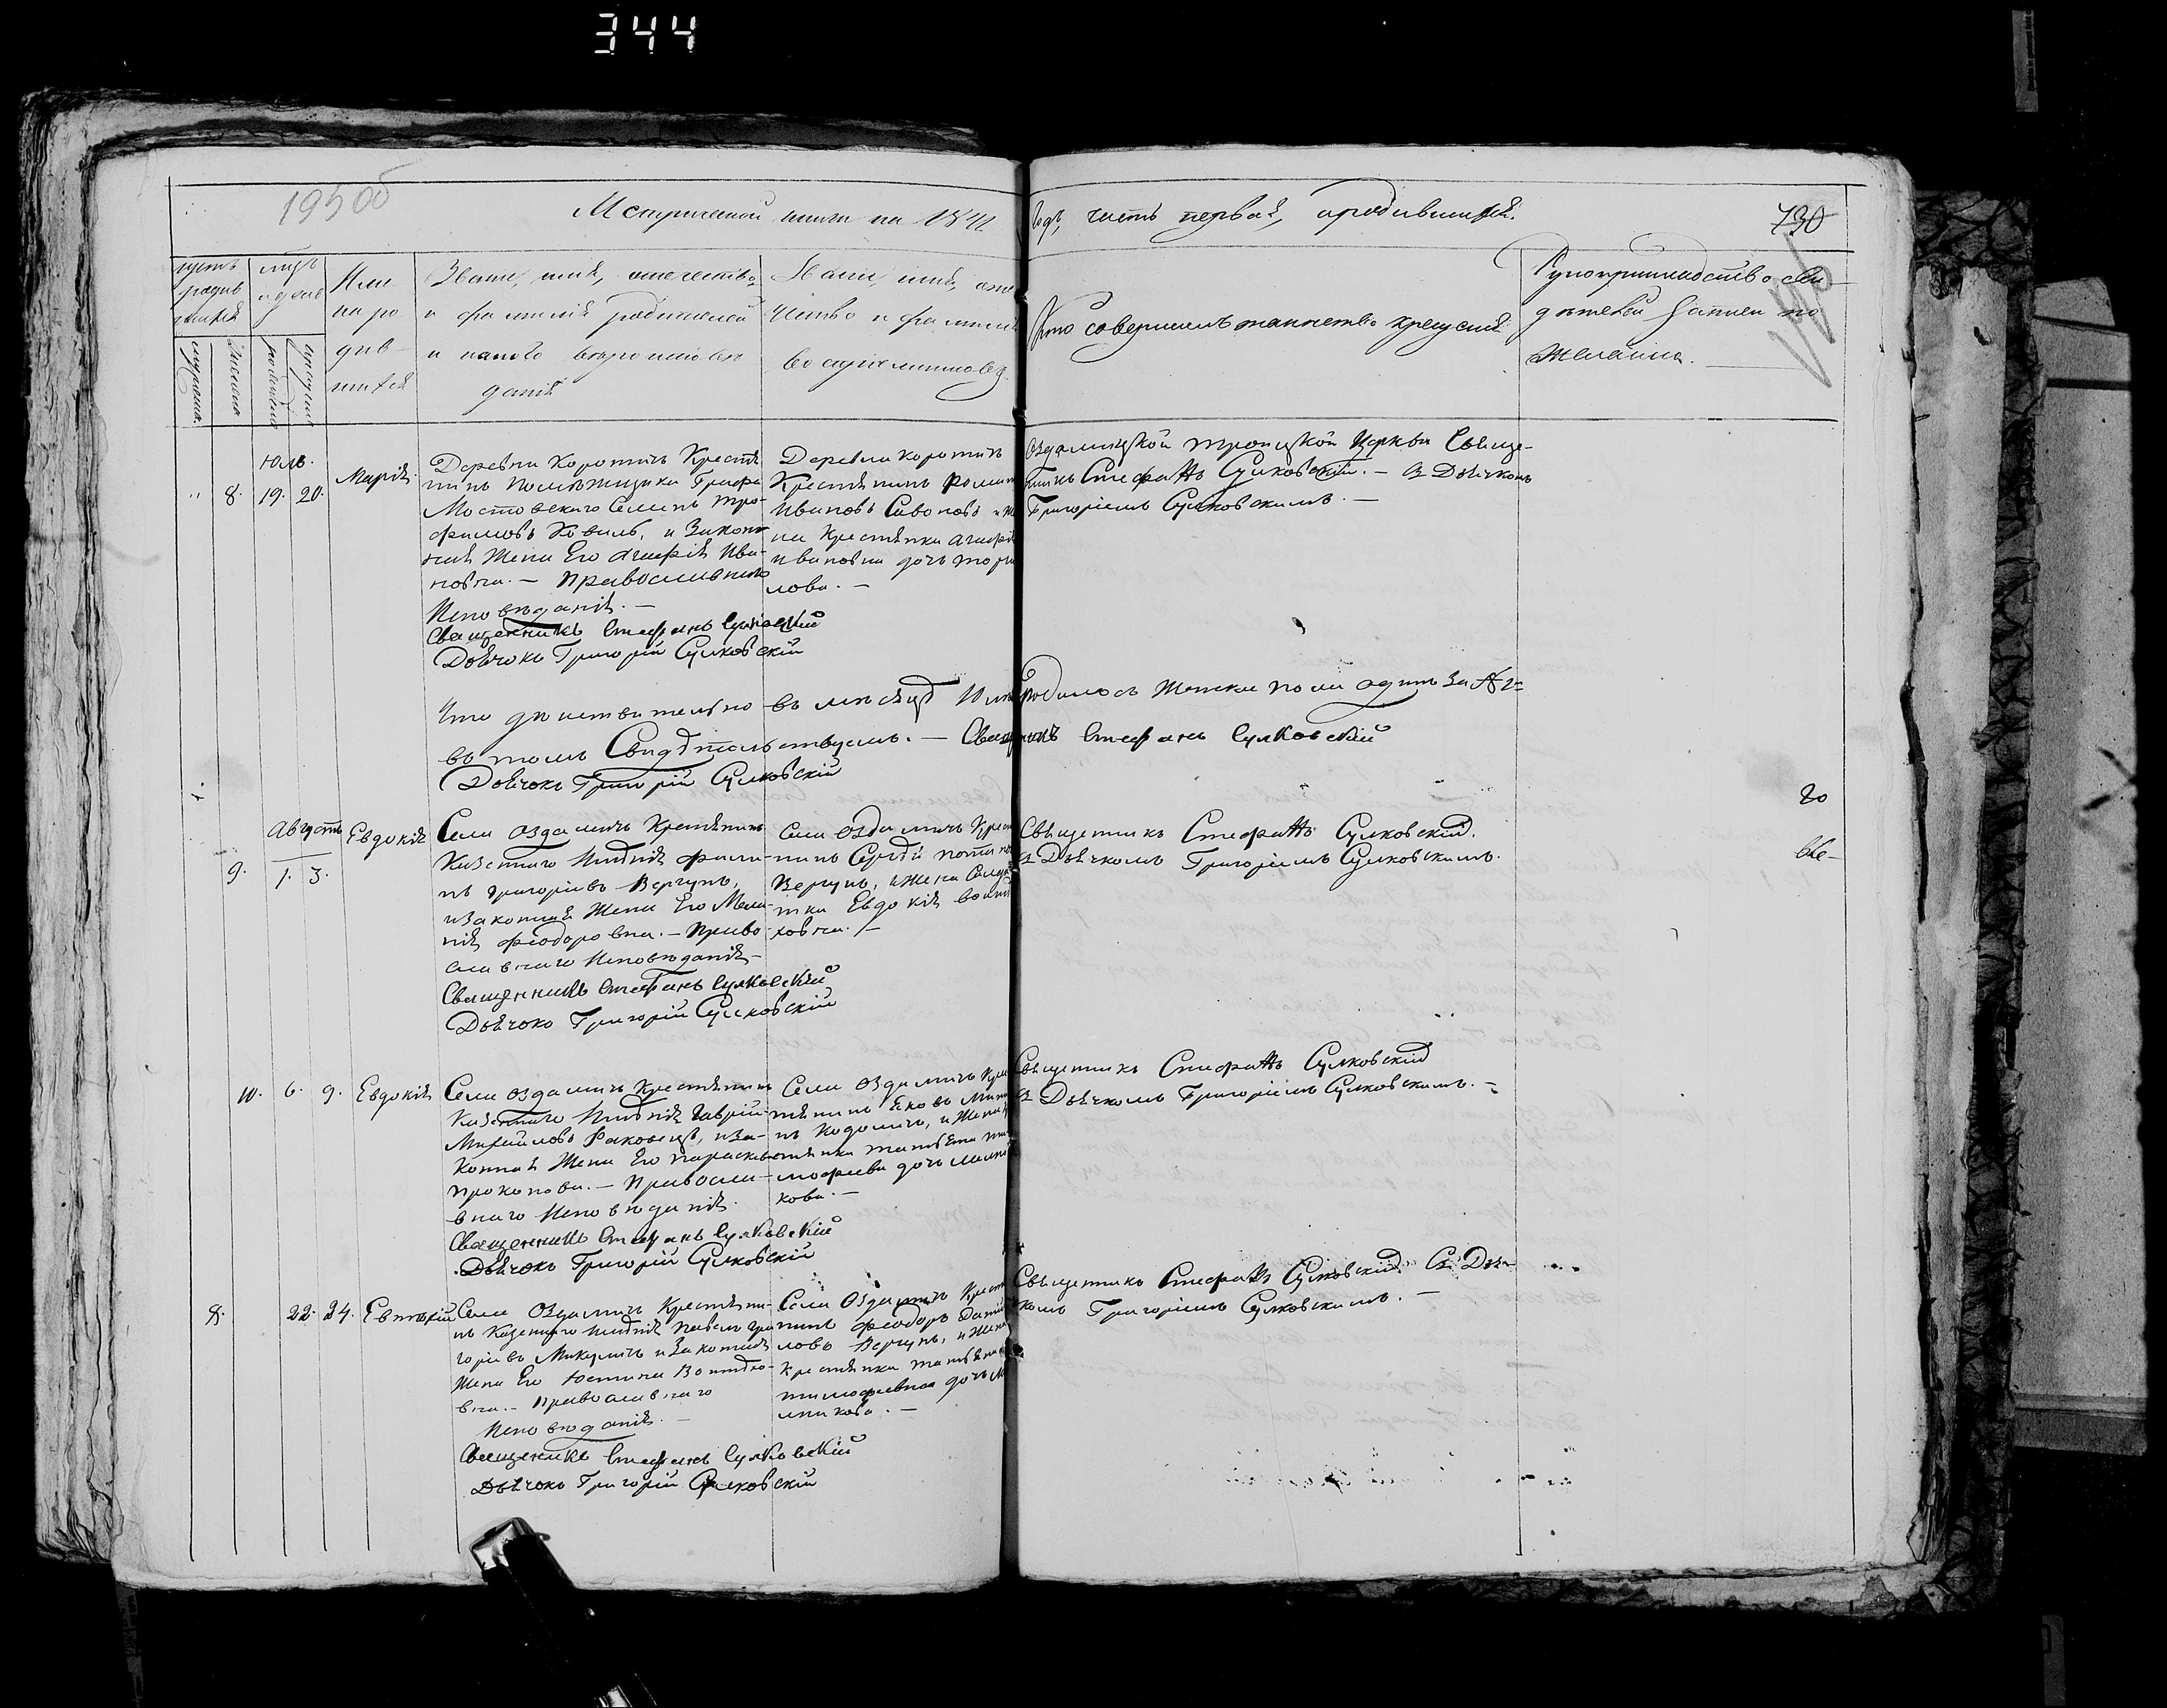 344
195 об
Метрической книги на 1841 годъ, часть первая, о родившихся.
730
Счетъ родившихся
мужеска
женска
Мѣсяцъ и день
рожденія
крещенія
Имена родившихся
Званіе, имя, отечество,
и фамилія родителей
и какого вѣроисповѣ
данія
Званіе, имя, оте
чество и фамилія
воспріемниковъ
Кто совершалъ таинство крещенія
Рукоприкладство сви
дѣтелей записи по
желанію.
Юль.
" 8. 19. 20.
Марія.
Деревни Коротичъ Крестя
нинъ Помѣжщика Графа
Мостовскаго Семенъ Тро-
фимовъ Коваль, и Закон
ная Жена Его Агафія Ива-
новна. — Православнаго
Исповѣданія. —
Священникъ Стефанъ Сулковскій
Дьячокъ Григорій Сулковскій
Деревни Коротичъ
Крестянинъ Роман
Ивановъ и
на Крестянка Агафія
Ивановна дочь
лова. —
Оздамицкой Троицкой Церкви Свяще-
нникъ Стефанъ Сулковскій. — Съ Дьячкомъ
Григоріемъ Сулковскимъ. —
Что дѣйствительно въ мѣсяцѣ Юлѣ родилось Женска пола одинъ за №
въ томъ Свидѣтельствуемъ. — Священникъ Стефанъ Сулковскій
Дьячокъ Григорій Сулковскій
Августъ
9. 1. 3.
Евдокія
Села Оздамичъ Крестянинъ
Казеннаго Имѣнія Фили-
пъ Григорьевъ Вергунъ,
и Законная Жена Его Мела-
нія Феодоровна. — Право-
славнаго Исповѣданія —
Священникъ Стефанъ Сулковскій
Дьячокъ Григорій Сулковскій
Села Оздамичъ Крест
нинъ Сергѣй
Вергунъ, и Жена
тка Евдокія
ховна. —
Священникъ Стефанъ Сулковскій.
Съ Дьячкомъ Григоріемъ Сулковскимъ.
10. 6. 9. Евдокія
Села Оздамичъ Крестянинъ
Казеннаго Имѣнія Гаврій-
Михайловъ Раковецъ, и За-
конная Жена Его Параскева
Прокопова. — Правосла-
внаго Исповѣданія.
Священникъ Стефанъ Сулковскій
Дьячокъ Григорій Сулковскій
Села Оздамичъ Кре
тянинъ Яковъ
нъ Кодоличъ, и Жена
Татьяна Ти
мофеева дочь
кова. —
Священникъ Стефанъ Сулковскій
Съ Дьячкомъ Григоріемъ Сулковскимъ. —
8. 22. 24. Евтихій
Села Оздамичъ Крестяни-
нъ Казеннаго Имѣнія Павелъ Гри
горіевъ Микуличъ и Законная
Жена Его Юстина
вна. — Православнаго
Исповѣданія. —
Священникъ Стефанъ Сулковскій
Дьячокъ Григорій Сулковскій
Села Оздамичъ Крест
нинъ Феодоръ Дани
ловъ Вергунъ, и Жена
Крестянка Татьяна
Тимофеевна дочь
Священникъ Стефанъ Сулковскій Съ Дья-
чкомъ Григоріемъ Сулковскимъ. —